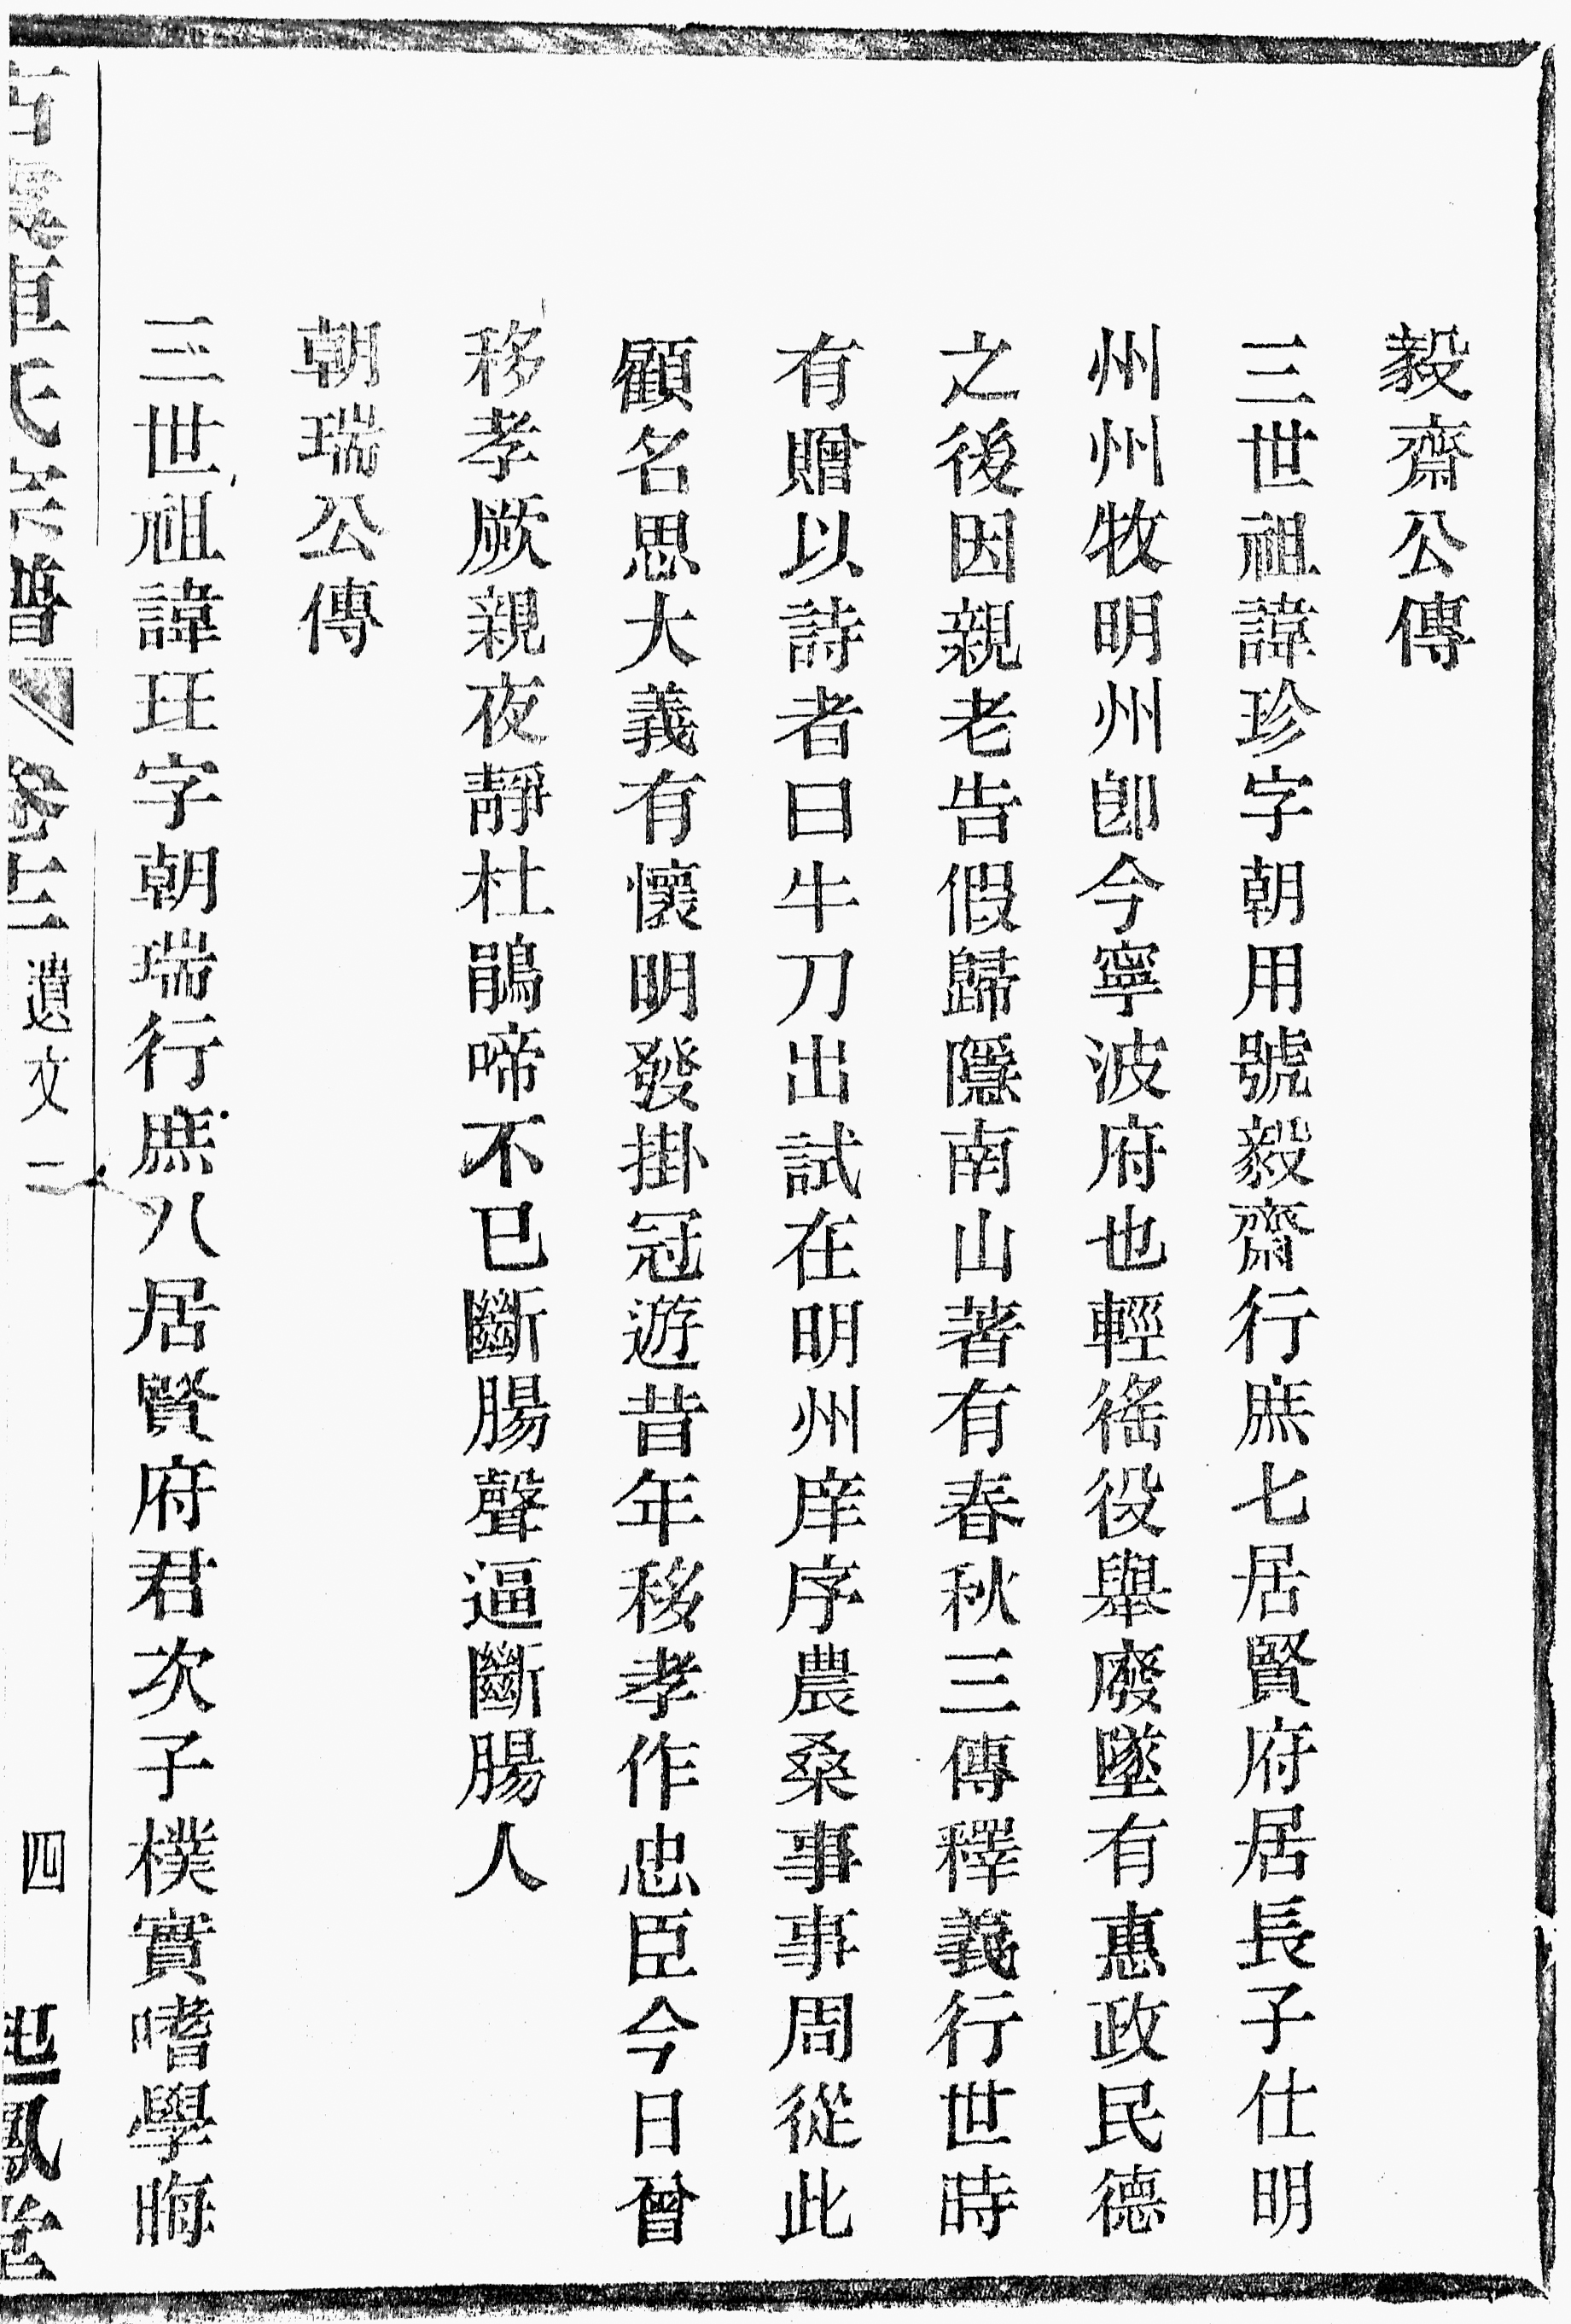 毅齋公傳
三世祖諱珍字朝用號毅齋行庶七居賢府居長子仕明
州州牧明州卽今寧波府也輕徭役舉廢墜有惠政民德
之後因親老告假歸隱南山著有春秋三傳釋義行世時
有贈以詩者曰牛刀出試在明州庠序農桑事事周從此
顧名思大義有懷明發掛冠遊昔年移孝作忠臣今日曾
移孝厥親夜靜杜鵑啼不已斷腸聲逼斷腸人
朝瑞公傳
三世祖諱玨字朝瑞行庶八居賢府君次子樸實嗜學晦
車氏宗譜 卷十三 遺文二 四 起鳳堂